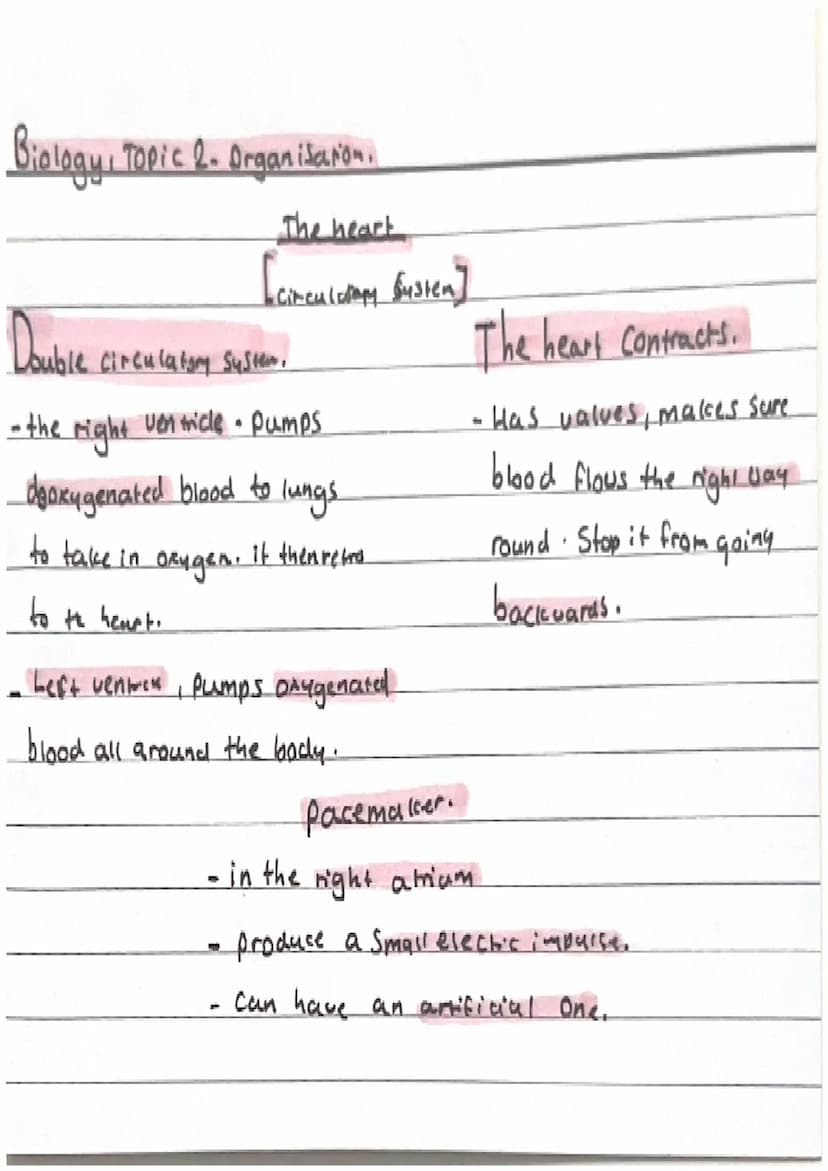 Biology, Topic 2. Organisation.
The heart
[circulatory System]
Double circulatory system.
- the right ventricle. Pumps
deoxygenated blood to lungs
to take in oxygen. it then
to the heart.
- Left , pumps oxygenated
blood all around the body.
The heart Contracts.
- Has valves, makes sure
blood flows the right way
round. Stop it from going
backwards.
pacemaker.
- in the right atrium
- produce a small electric impulse.
- Can have an artificial one.